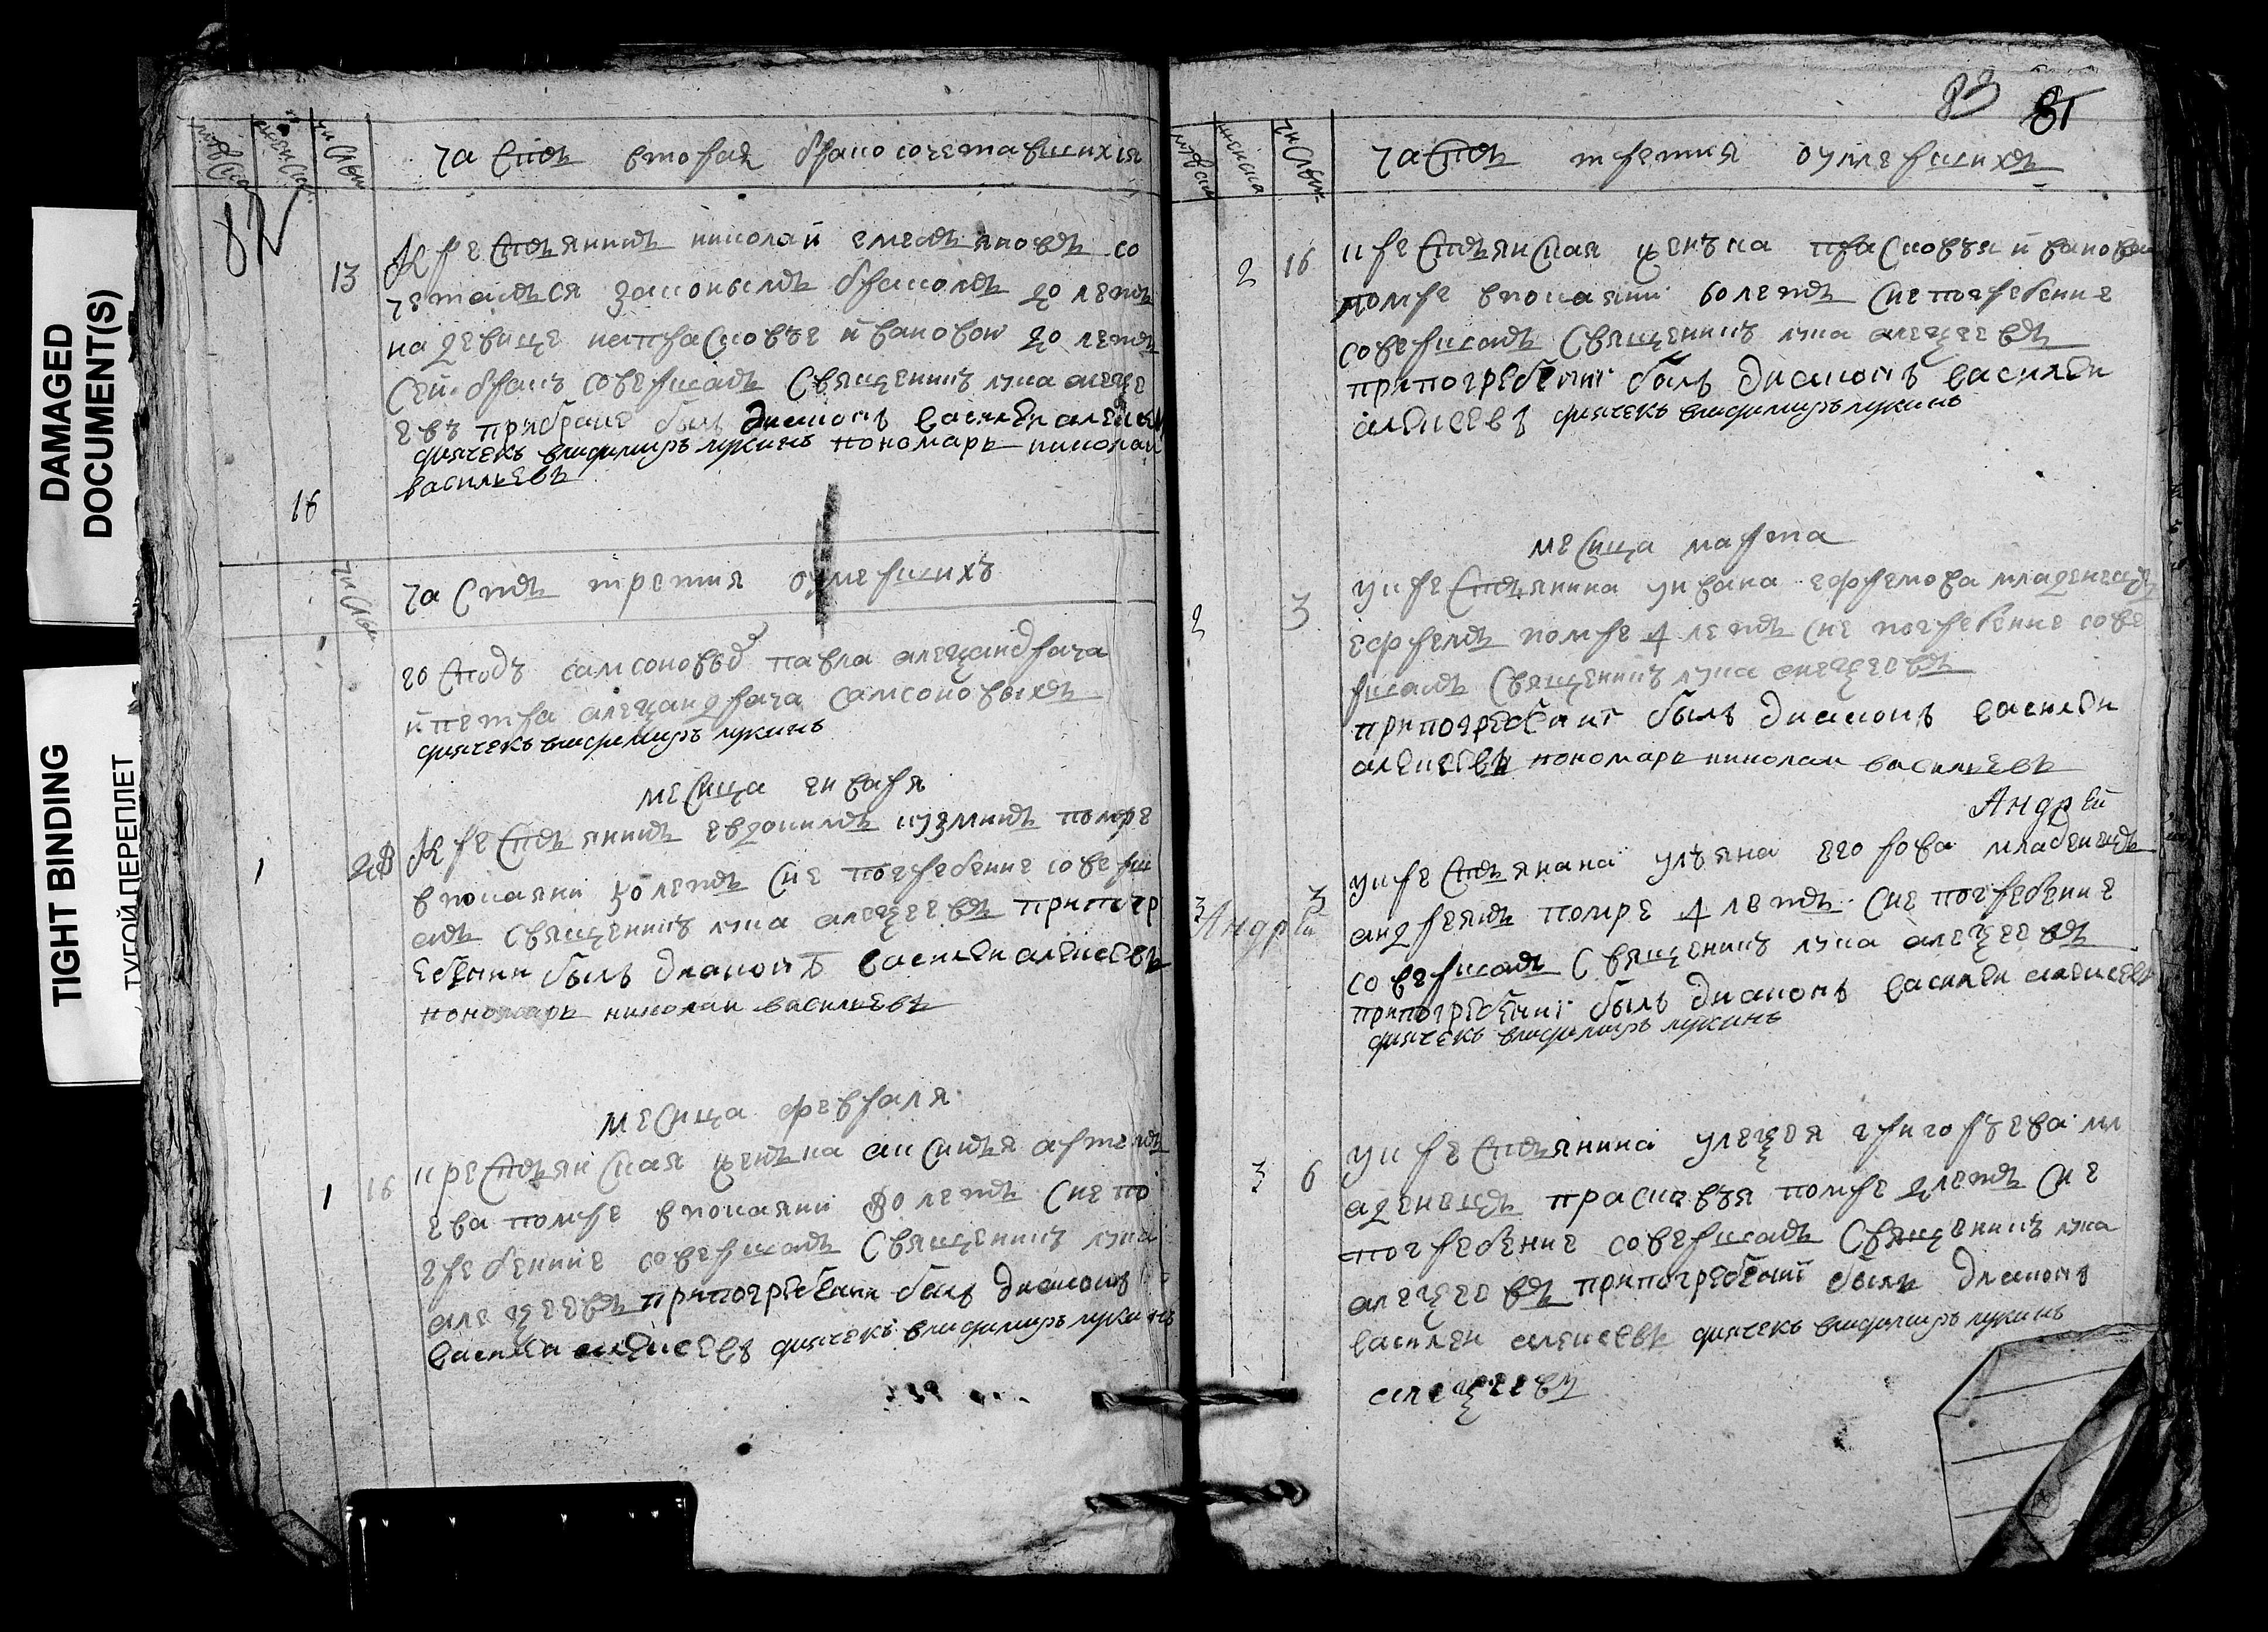 DAMAGED
DOCUMENT(S)
TIGHT BINDING
ТУГОЙ ПЕРЕПЛЕТ
82
мужска
женска
числы
часть вторая бракосочетавшихся
13
крестьянинъ николай емельяновъ со
четался законымъ бракомъ 20 летъ
на девице на прасковье ивановой 20 летъ
сей бракъ совершалъ священникъ лука алеѯе
евъ прибраке былъ диаконъ василеи алеѯеевъ
диячекъ владимиръ лукинъ пономарь николаи
васильевъ
16
числы
часть третия оумершихъ
господъ самсоновыхъ павла алеѯандрача
и петра алеѯандрача самсоновыхъ
диячекъ владимиръ лукинъ
месица енваря
1
28
крестьянинъ евдокимъ кузминъ помре
в покаянии 50 летъ сие погребение соверш
алъ священникъ лука алеѯеевъ припогр
ебении былъ диаконъ василеи алексеевъ
пономарь николаи васильевъ
месица февраля
1
16
крестьянская женъка аксинья артемь
ева помре в покаянии 80 летъ сие по
гребение совершалъ священникъ лука
алеѯеевъ припогребении былъ диаконъ
василеи алексеевъ диячекъ владимиръ лукинъ
83 81
мужска
женска
числы
часть третия оумершихъ
2
16
крестьянская женъка прасковъя иванова
помре в покаянии 60 летъ сие погребение
совершалъ священникъ лука алеѯеевъ
припогребении былъ диаконъ василеи
алексеевъ диячекъ владимиръ лукинъ
месица марта
2
3
у крестьянина у ивана ефремова младенецъ
ефремъ помре 4 летъ сие погребение сове
ршалъ священникъ лука алеѯеевъ
припогребении былъ диаконъ василеи
алексеевъ пономарь николаи васильевъ
Андрей
3
3
Андрей
у крестьянина ульяна егорова младенецъ
андреянъ помре 4 летъ сие погребение
совершалъ священникъ лука алеѯеевъ
припогребении былъ диаконъ василеи алексеевъ
диячекъ владимиръ лукинъ
3
6
у крестьянина у леѯея григоръева мл
аденецъ прасковъя помре 2 летъ сие
погребение совершалъ священникъ лука
алеѯеевъ припогребении былъ диаконъ
василеи алексеевъ диячекъ владимиръ лукинъ
алеѯеевъ